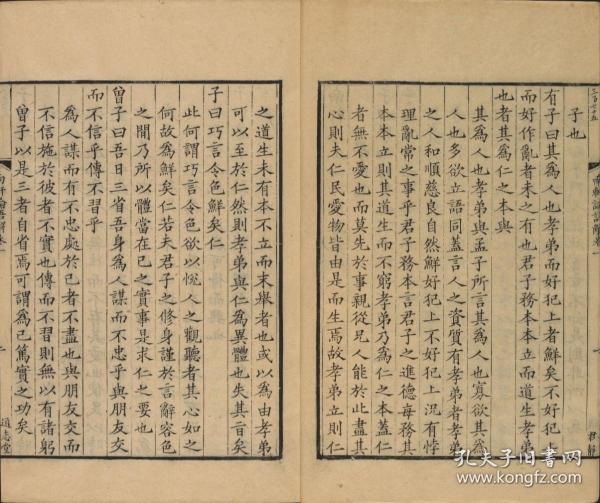 子也
有子曰其為人也孝弟而好犯上者鮮矣不好犯上
而好作亂者未之有也君子務本本立而道生孝弟
也者其為仁之本與
其為人也孝弟與孟子所言其為人也寡欲其為
人也多欲立語同蓋言人之資質有孝弟者孝弟
之人和順慈良自然鮮好犯上不好犯上況有悖
理亂常之事乎君子務本言君子之進德每務其
本本立則其道生而不窮孝弟乃為仁之本蓋仁
者無不愛也而莫先於事親從兄人能於此盡其
心則夫仁民愛物皆由是而生焉故孝弟立則仁
之道生未有本不立而末舉者也或以為由孝弟
可以至於仁然則孝弟與仁為異體也失其旨矣
子曰巧言令色鮮矣仁
此何謂巧言令色欲以悅人之觀聽者其心如之
何故為鮮矣仁若夫君子之修身謹於言辭容色
之間乃所以體當在己之實事是求仁之要也
曾子曰吾日三省吾身為人謀而不忠乎與朋友交
而不信乎傳不習乎
為人謀而有不忠處於己者不盡也與朋友交而
不信施於彼者不實也傳而不習則無以有諸躬
曾子以是三者自省焉可謂為己篤實之功矣
三百七十五
南軒論語解卷一
通志堂
孔夫子旧书网
www.kongfz.com